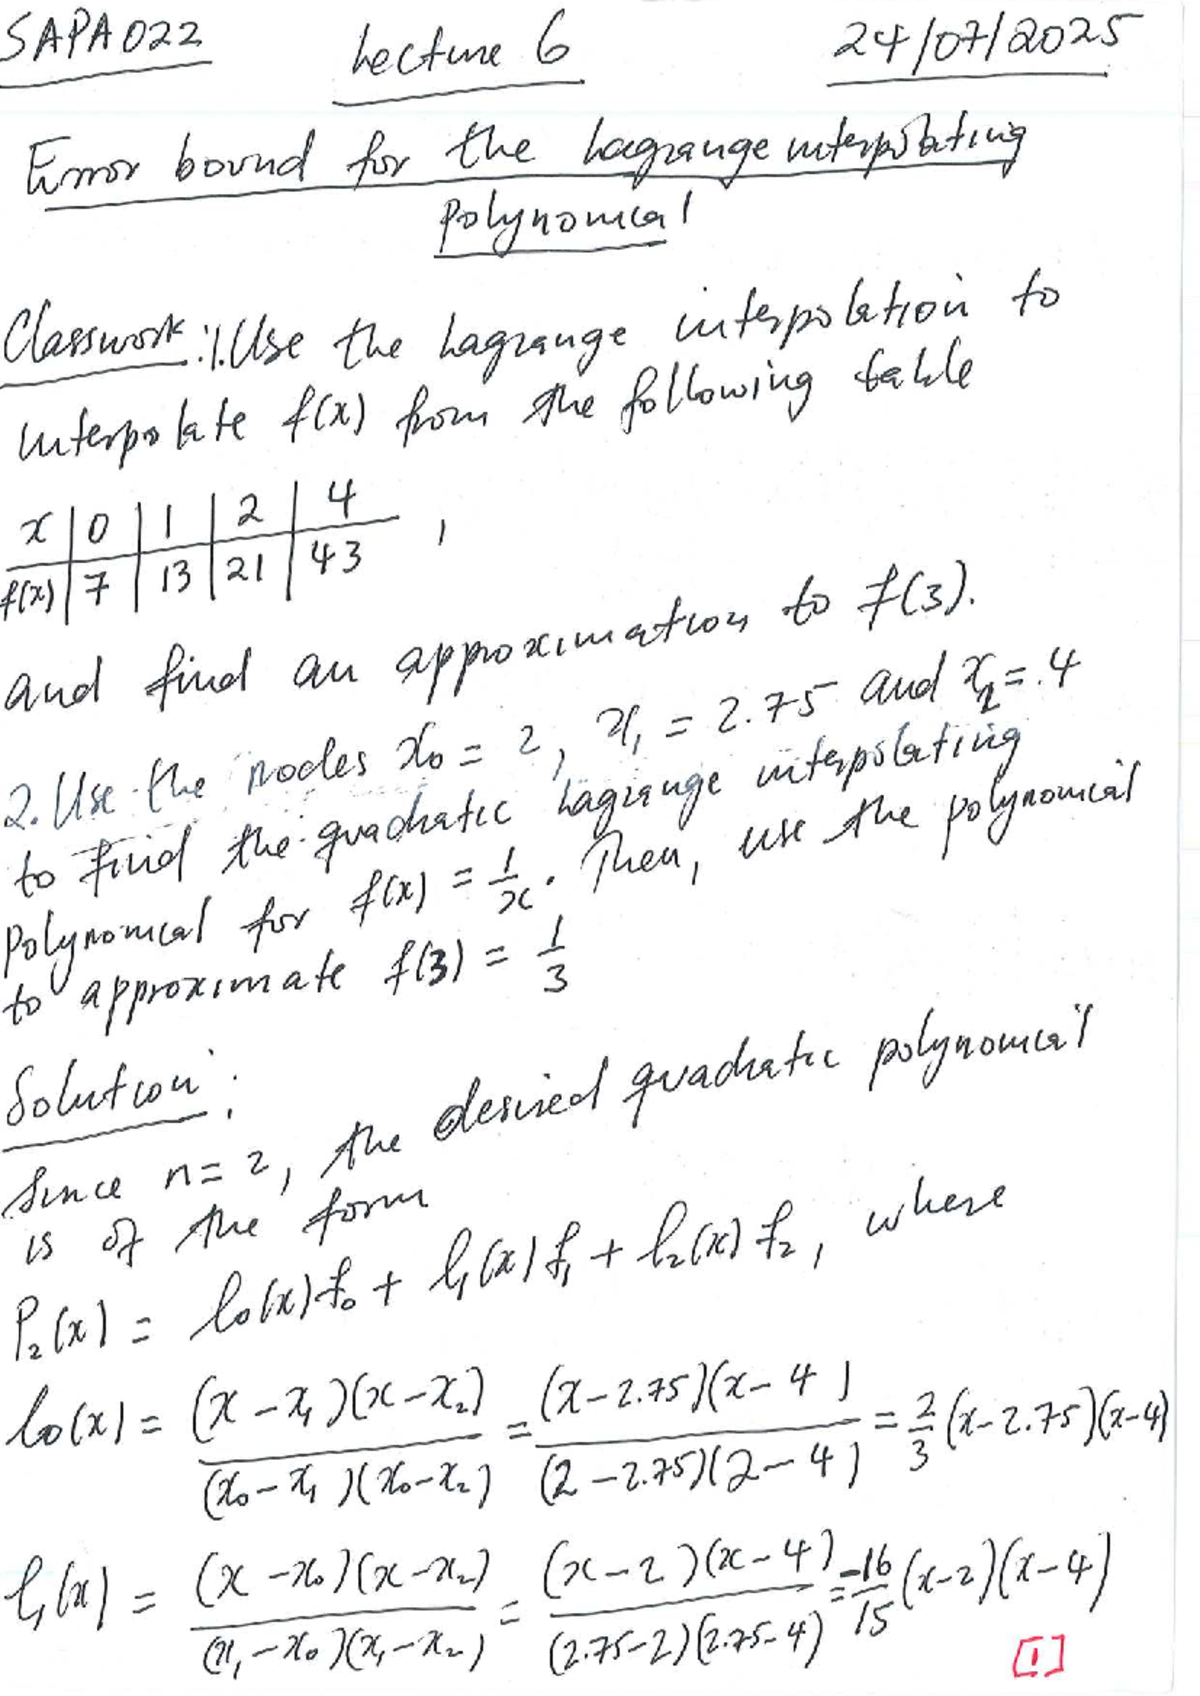 SAPA022 Lecture 6 24/07/2025
Error bound for the Lagrange interpolating
polynomial
Classwork: 1. Use the Lagrange interpolation to
interpolate f(x) from the following table
x | 0 | 1 | 2 | 4
f(x) | 7 | 13 | 21 | 43 ,
and find an approximation to f(3).
2. Use the nodes x₀ = 2, x₁ = 2.75 and x₂ = 4
to find the quadratic Lagrange interpolating
polynomial for f(x) = 1/x. Then, use the polynomial
to approximate f(3) = 1/3
Solution:
Since n = 2, the desired quadratic polynomial
is of the form
P₂(x) = l₀(x)f₀ + l₁(x)f₁ + l₂(x)f₂, where
l₀(x) = (x - x₁)(x - x₂) / (x₀ - x₁)(x₀ - x₂) = (x - 2.75)(x - 4) / (2 - 2.75)(2 - 4) = 2/3 (x - 2.75)(x - 4)
l₁(x) = (x - x₀)(x - x₂) / (x₁ - x₀)(x₁ - x₂) = (x - 2)(x - 4) / (2.75 - 2)(2.75 - 4) = -16/15 (x - 2)(x - 4)
[1]